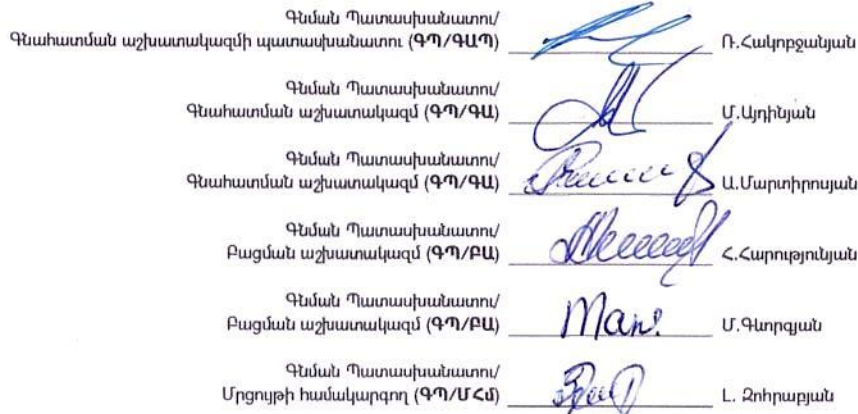 Գնման Պատասխանատու/
Գնահատման աշխատակազմի պատասխանատու (ԳՊ/ԳԱՊ) Ռ.Հակոբջանյան
Գնման Պատասխանատու/
Գնահատման աշխատակազմ (ԳՊ/ԳԱ) Մ.Այդինյան
Գնման Պատասխանատու/
Գնահատման աշխատակազմ (ԳՊ/ԳԱ) Ա.Մարտիրոսյան
Գնման Պատասխանատու/
Բացման աշխատակազմ (ԳՊ/ԲԱ) Հ.Հարությունյան
Գնման Պատասխանատու/
Բացման աշխատակազմ (ԳՊ/ԲԱ) Մ.Գևորգյան
Գնման Պատասխանատու/
Մրցույթի համակարգող (ԳՊ/ՄՀմ) Լ. Զոհրաբյան